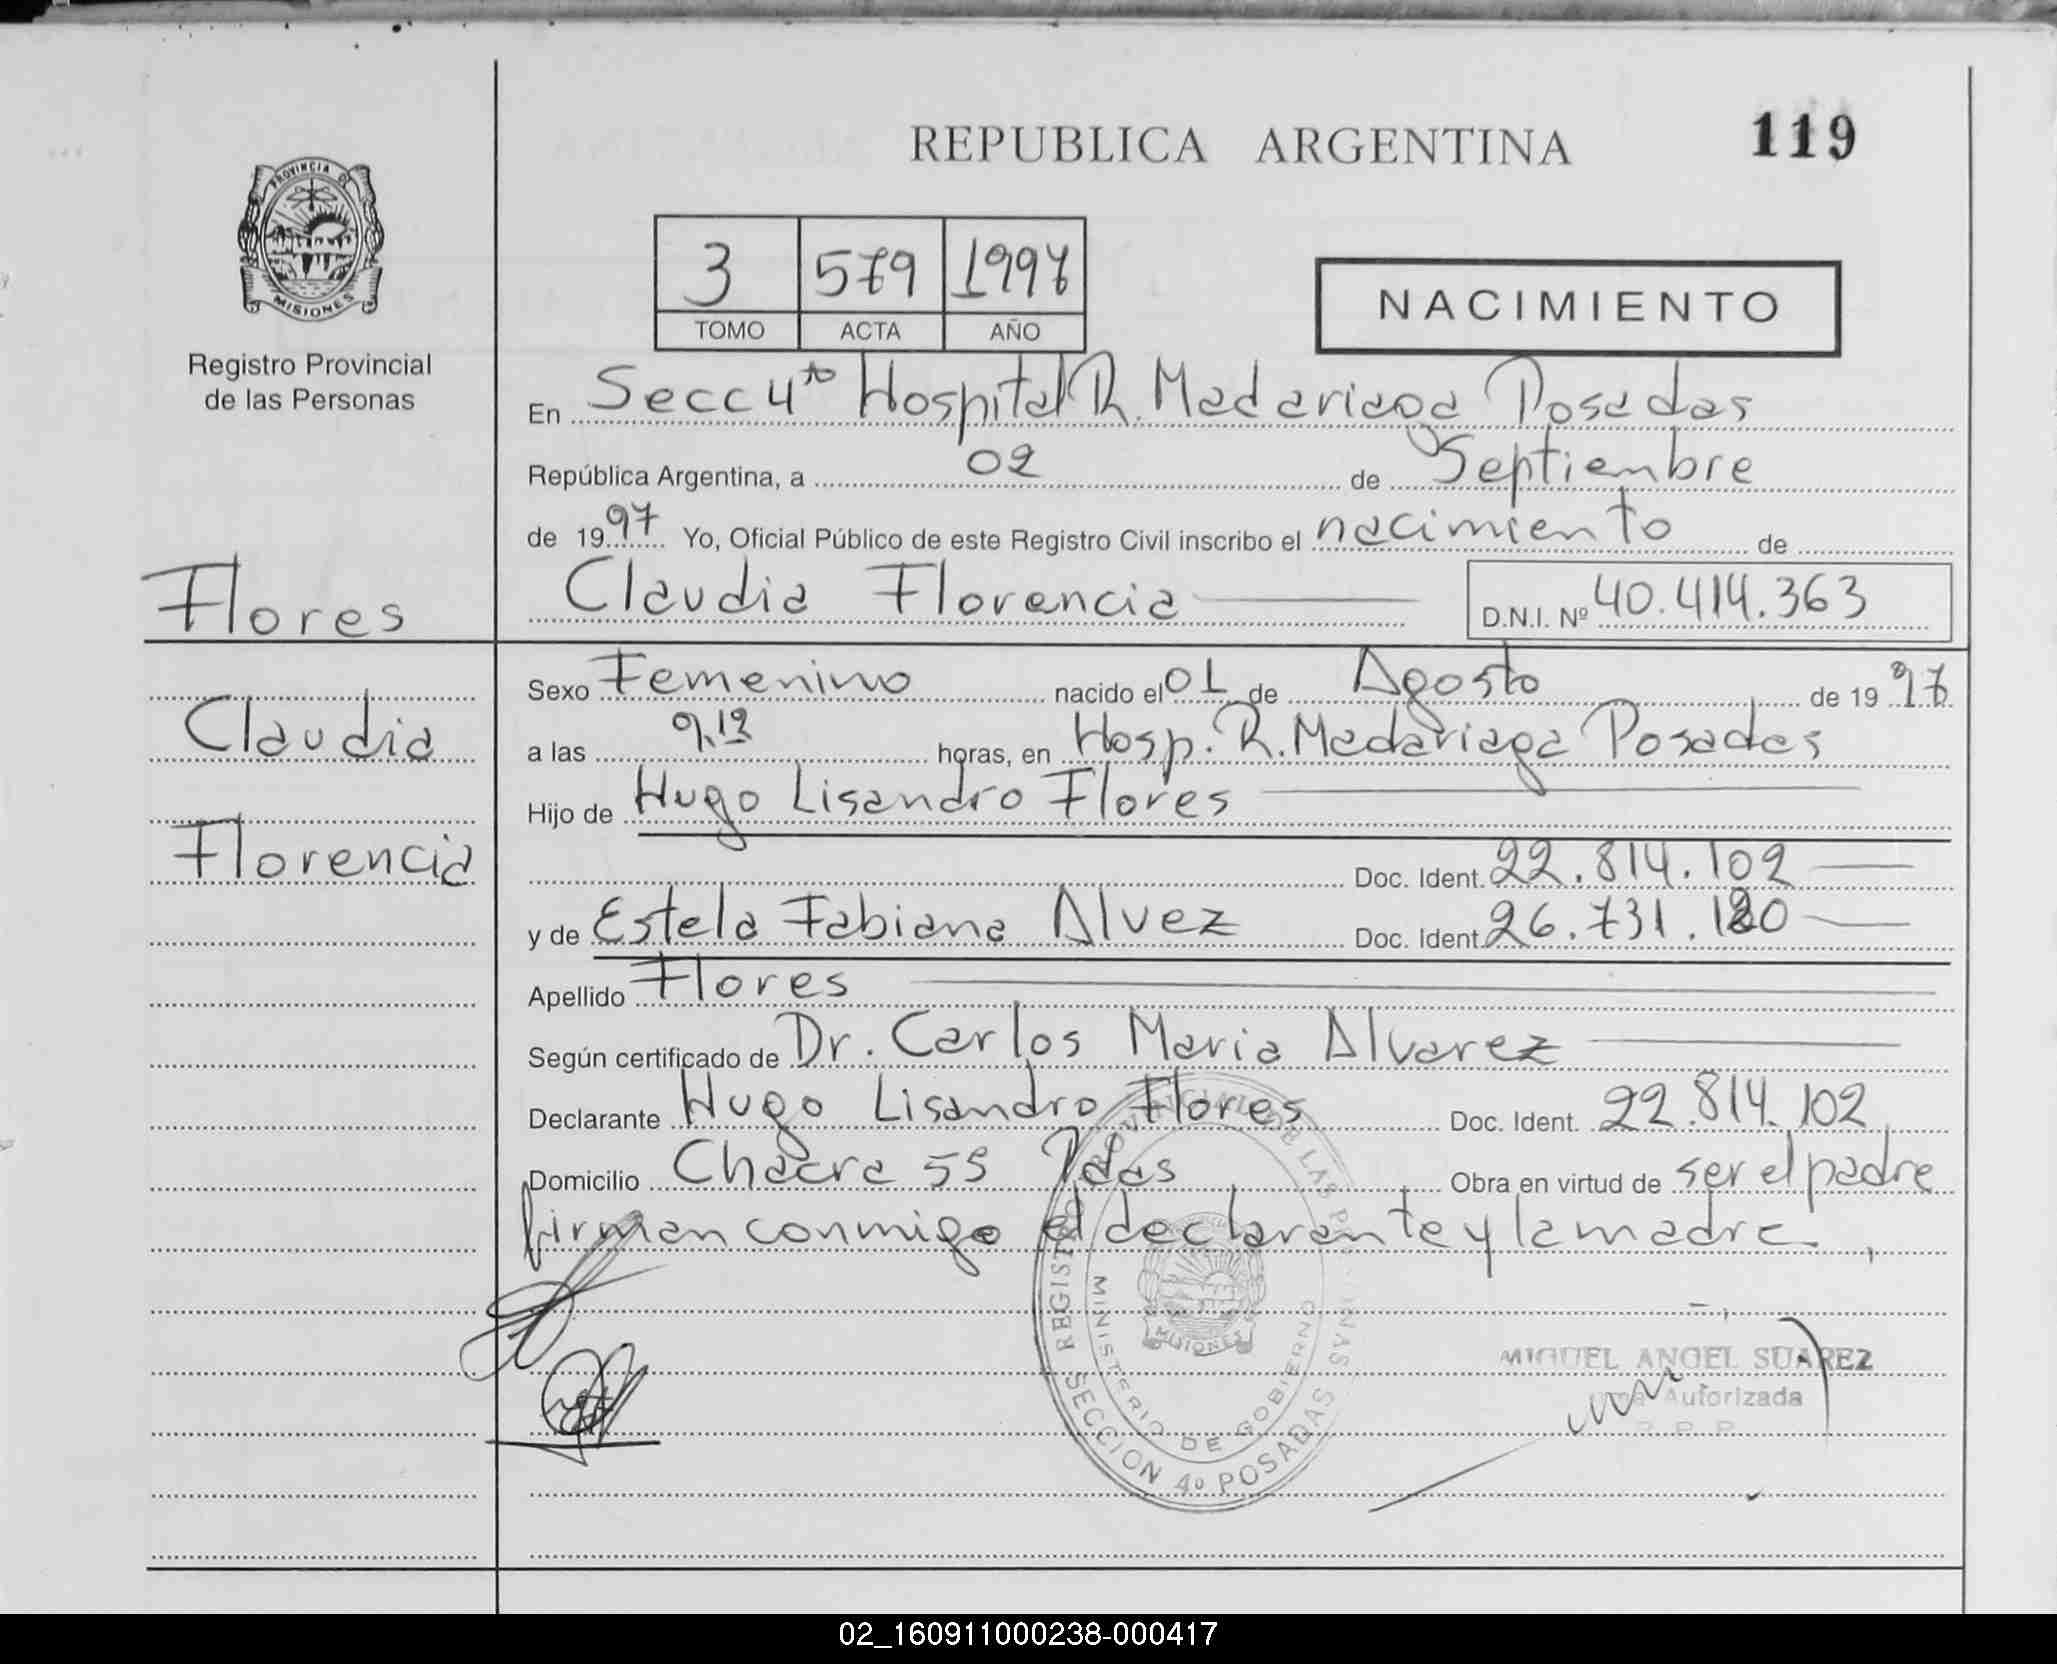 REPUBLICA ARGENTINA
119
PROVINCIA DE
MISIONES
Registro Provincial
de las Personas
3 579 1997
TOMO ACTA AÑO
NACIMIENTO
En Secc 4ta Hospital R. Madariaga Posadas
República Argentina, a 02 de Septiembre
de 1997 Yo, Oficial Público de este Registro Civil inscribo el nacimiento de
Claudia Florencia D.N.I. Nº 40.414.363
Flores
Claudia
Florencia
Sexo Femenino nacido el 01 de Agosto de 1997
a las horas, en Hosp. R. Madariaga Posadas
Hijo de Hugo Lisandro Flores
Doc. Ident. 22.814.102
y de Estela Fabiana Alvez Doc. Ident. 26.731.
Apellido Flores
Según certificado de Dr. Carlos Maria Alvarez
Declarante Hugo Lisandro Flores Doc. Ident. 22.814.102
Domicilio Chacra 55 Pdas Obra en virtud de ser el padre
firman conmigo el declarante y la madre.
REGISTRO PROVINCIAL DE LAS PERSONAS
MINISTERIO DE GOBIERNO
MISIONES
SECCION 4º POSADAS
MIGUEL ANGEL SUAREZ
Autorizada
R. P. P.
02_160911000238-000417